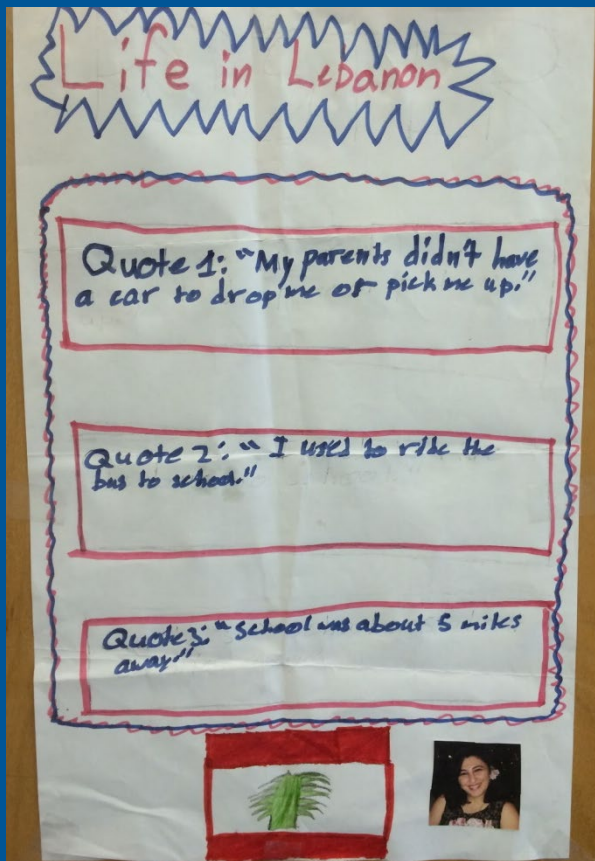 Life in Lebanon
Quote 1: "My parents didn't have
a car to drop me or pick me up."
Quote 2: "I used to ride the
bus to school."
Quote 3: "School was about 5 miles
away."